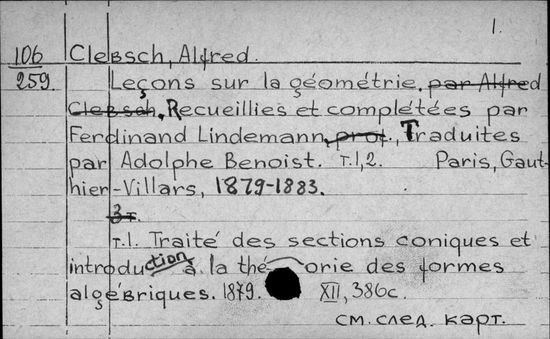 1.
106 Clebsch, Alfred.
259. Leçons sur la géométrie. par Alfred
Clebsch. Recueillies et complétées par
Ferdinand Lindemann, prof., Traduites
par Adolphe Benoist. т.1,2. Paris, Gaut-
hier-Villars, 1879-1883.
3 т.
т.1. Traité des sections coniques et
introduction à la théorie des formes
algébriques. 1879. XII, 386с.
см. след. карт.